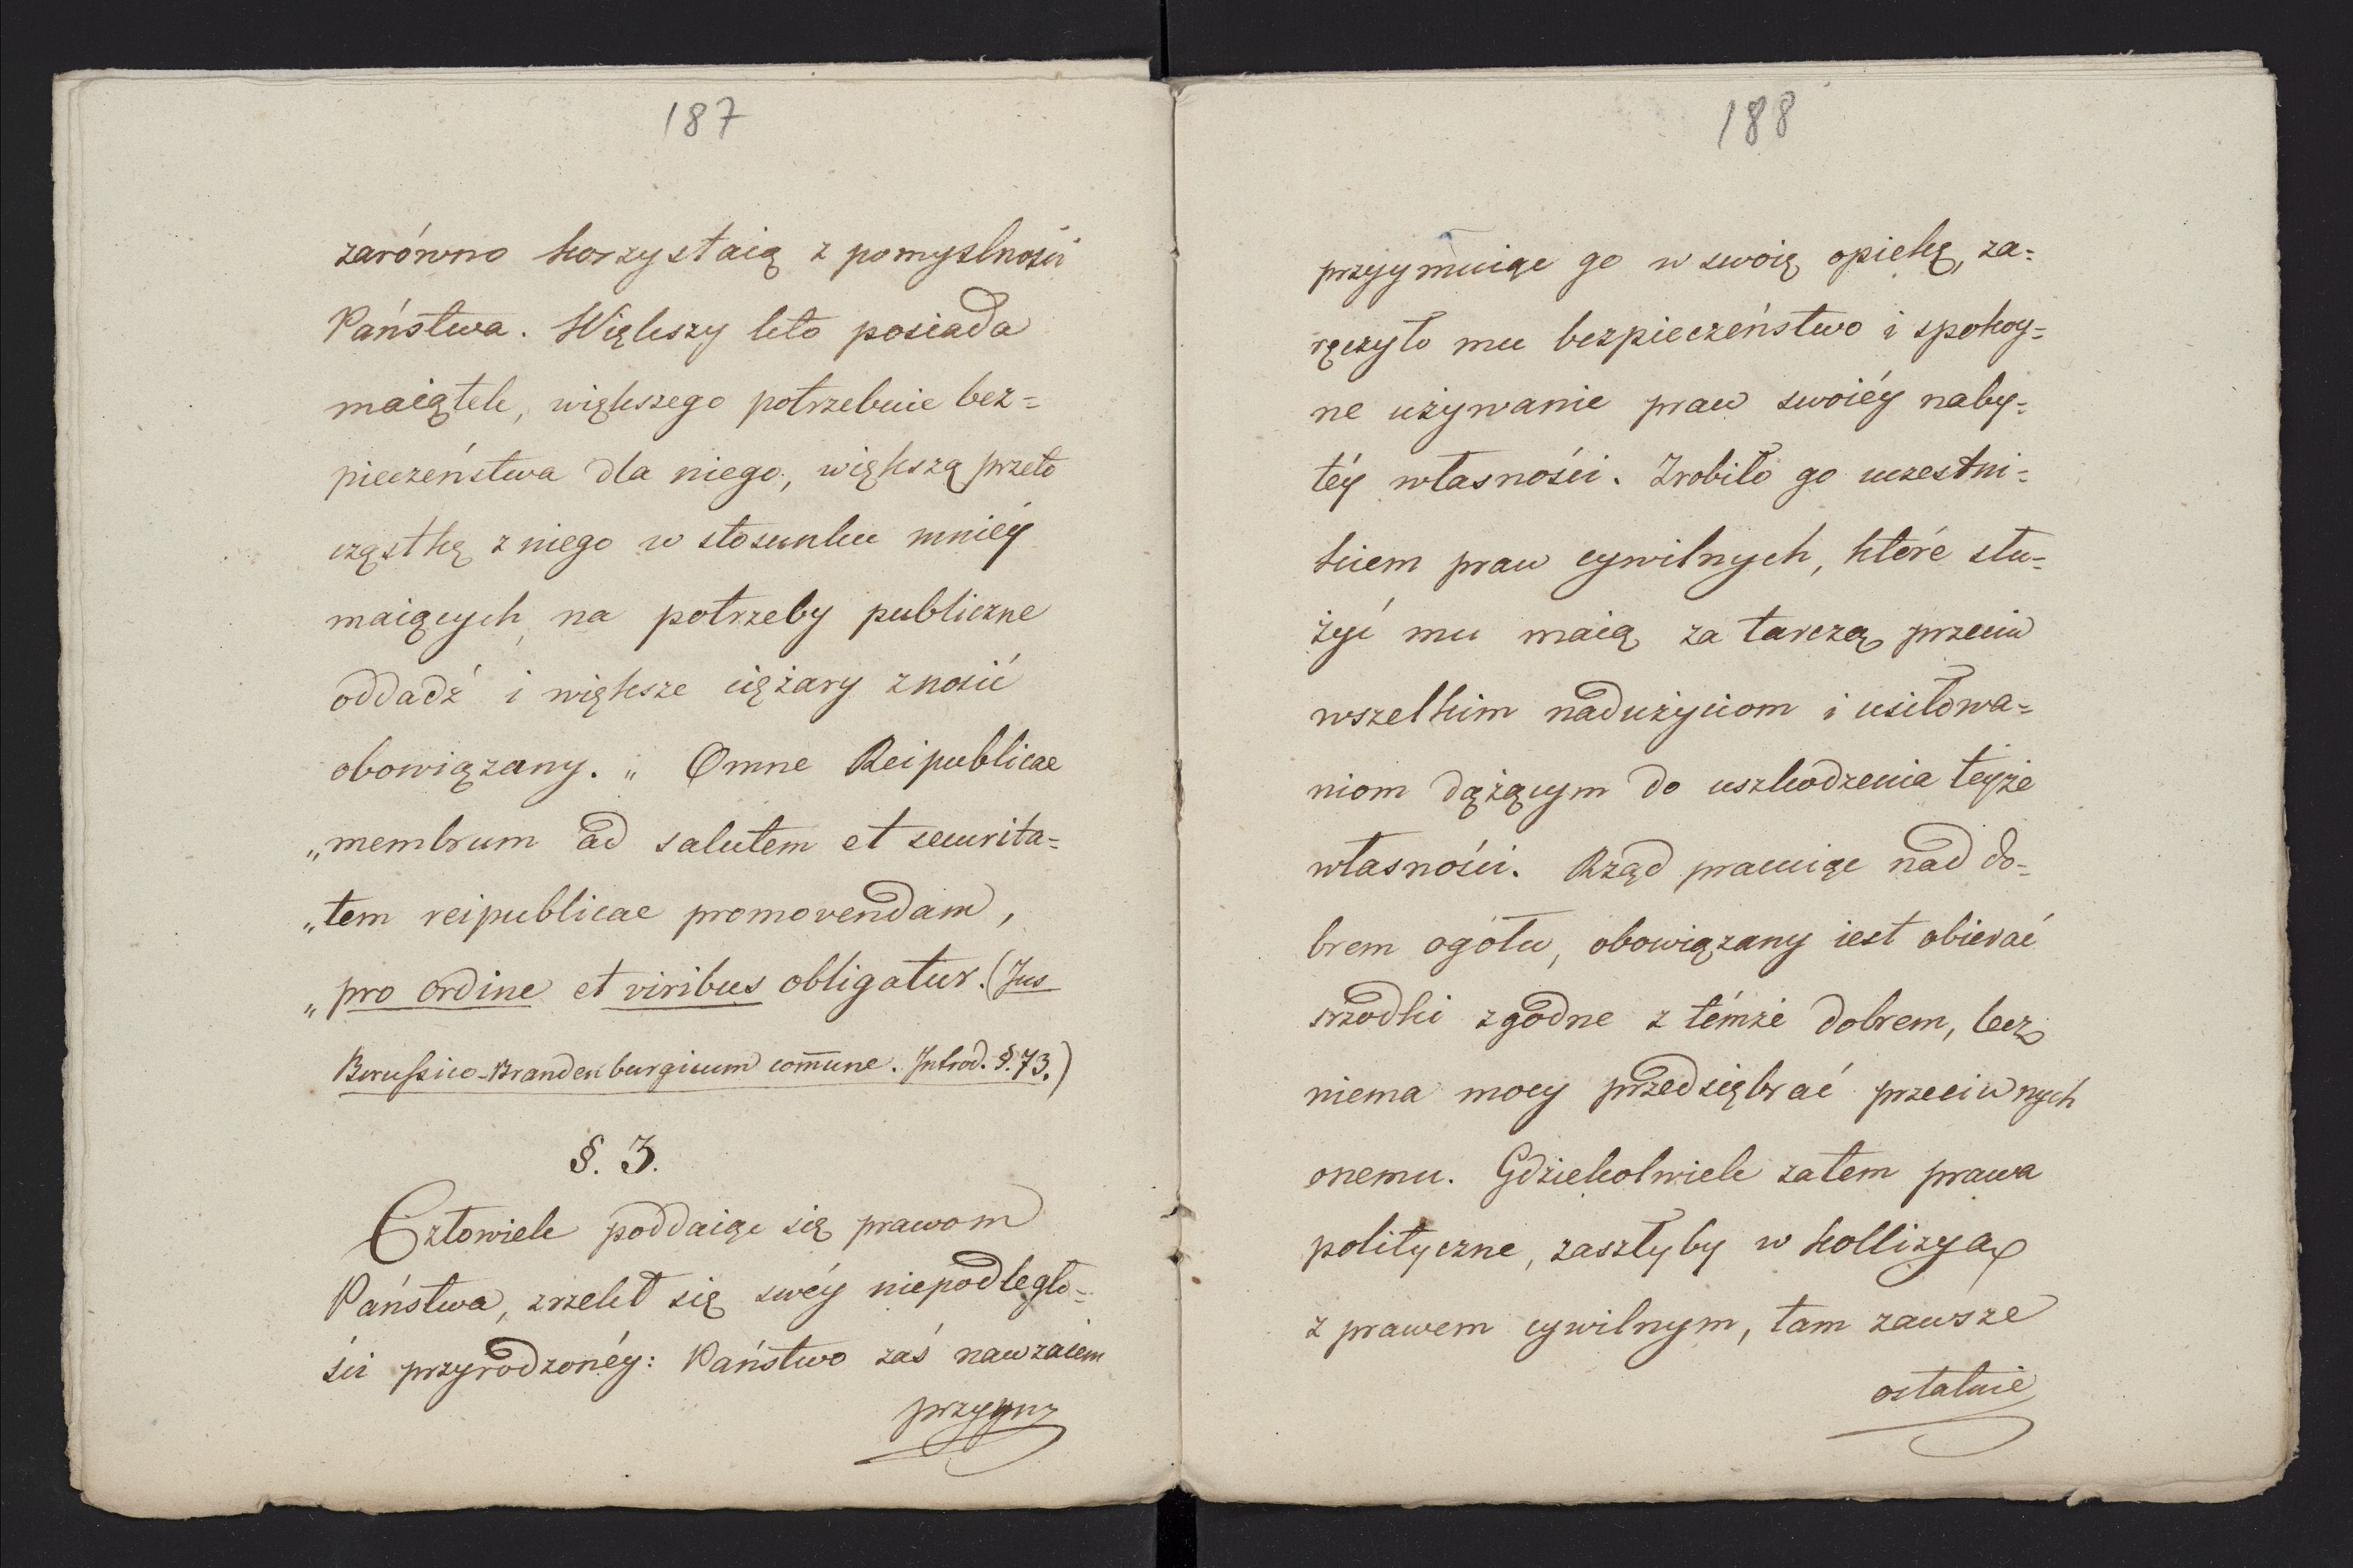 187
zarówno korzystaią z pomyslności
Państwa. Większy kto posiada
maiątek, większego potrzebuie bez=
pieczeństwa dla niego, większą przeto
cząstkę z niego w stosunku mniéy
maiących, na potrzeby publiczne
oddadź i większe ciężary znosić
obowiązany. „ Omne Reipublicae
„membrum ad salutem et securita=
„tem reipublicae promovendam,
„pro ordine et viribus obligatur. (Jus
Borussico-Brandenburgicum com̄une. Introd. §. 73.)
§. 3.
Człowiek poddaiąc się prawom
Państwa, zrzekł się swéy niepodległo=
ści przyrodzonéy: Państwo zaś nawzaiem
przyym
188
przyymuiąc go w swoię opiekę, za=
ręczyło mu bezpieczeństwo i spokoy=
ne używanie praw swoiéy naby=
téy własności. Zrobiło go uczestni=
kiem praw cywilnych, któré słu=
żyć mu maią za tarczą przeciw
wszelkim nadużyciom i usiłowa=
niom dążącym do uszkodzenia téyże
własności. Rząd pracuiąc nad do=
brem ogółu, obowiązany iest obierać
srzodki zgodne z témże dobrem, lecz
niema mocy przedsiębrać przeciwnych
onemu. Gdziekolwiek zatem prawa
polityczne, zaszłyby w kollizyą
z prawem cywilnym, tam zawsze
ostatnie